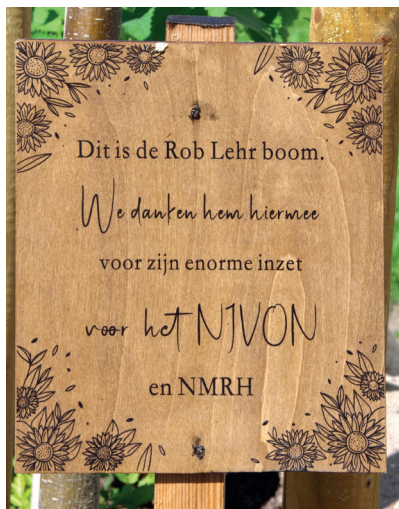 Dit is de Rob Lehr boom.
We danken hem hiermee
voor zijn enorme inzet
voor het NIVON
en NMRH